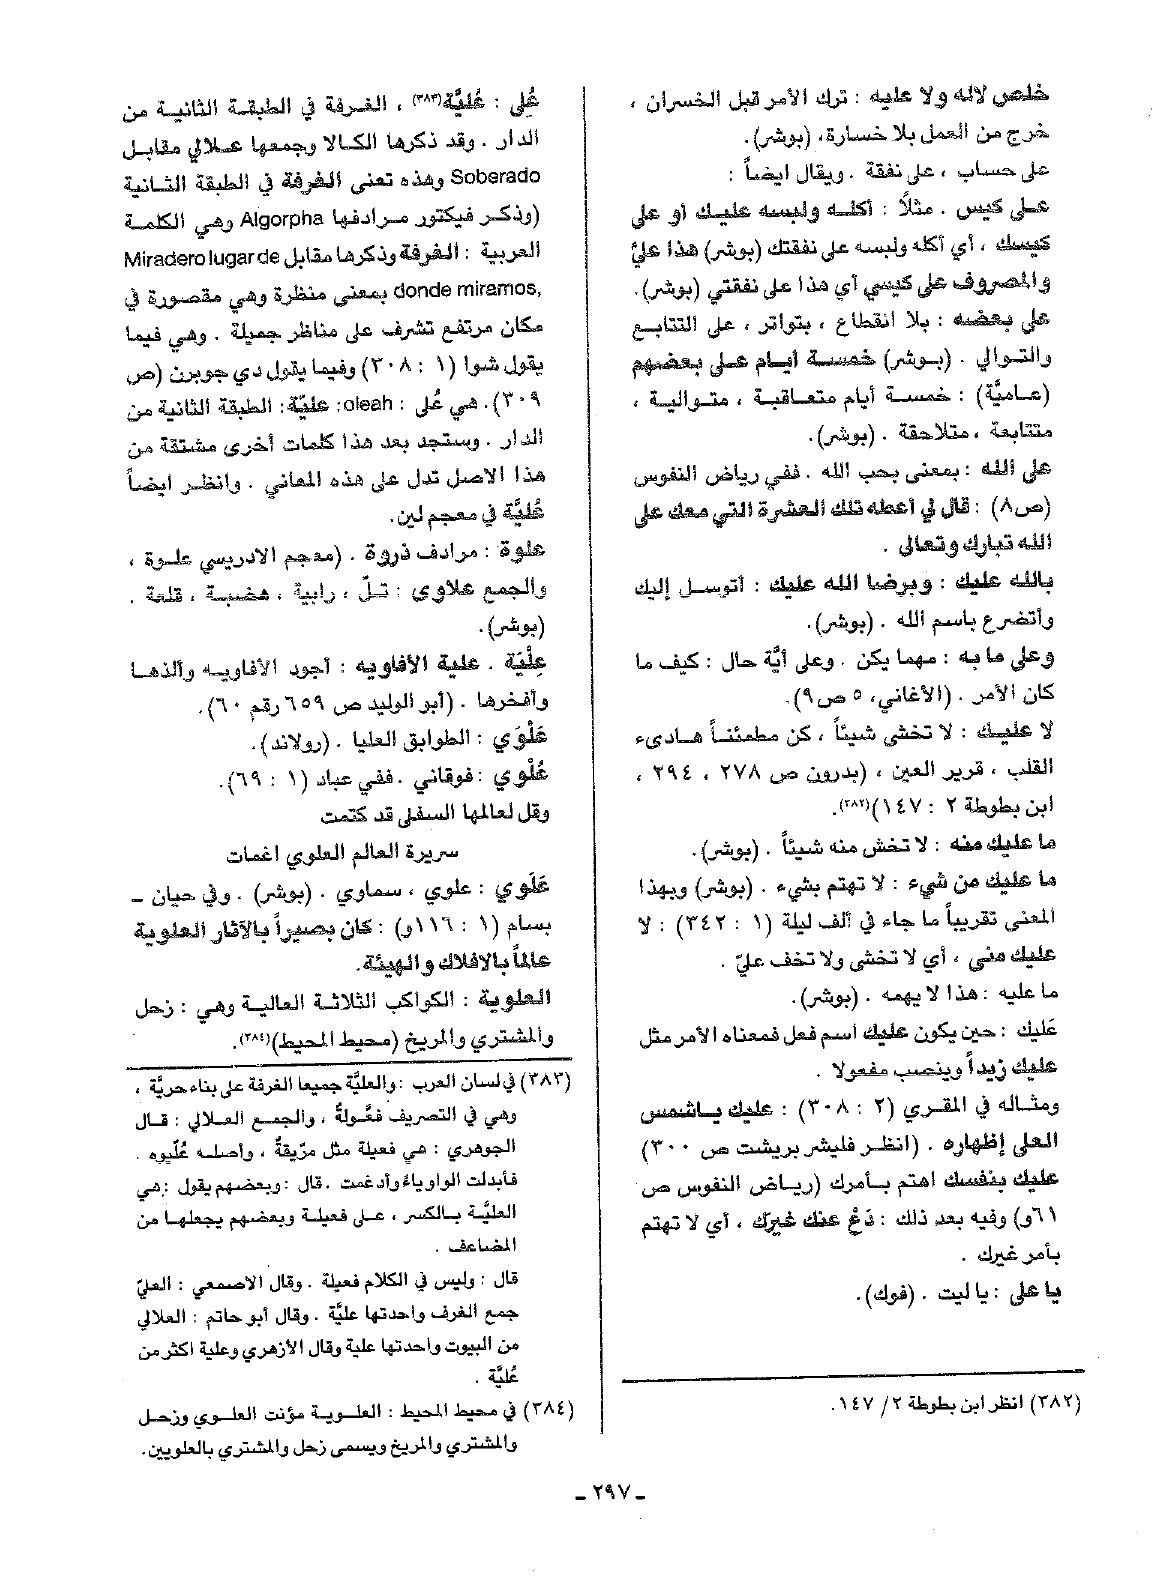 خلص لاله ولا عليه : ترك الأمر قبل الخسران ،
خرج من العمل بلا خسارة، (بوشر).
على حساب ، على نفقة . ويقال ايضاً :
على كيس . مثلاً : أكله ولبسه عليك أو على
كيسك ، أي أكله ولبسه على نفقتك (بوشر) هذا عليّ
والمصروف على كيسي أي هذا على نفقتي (بوشر).
على بعضه : بلا انقطاع ، بتواتر ، على التتابع
والتوالي . (بوشر) خمسة أيام على بعضهم
(عاميَّة) : خمسة أيام متعاقبة ، متوالية ،
متتابعة ، متلاحقة . (بوشر).
على الله : بمعنى بحب الله . ففي رياض النفوس
(ص٨) : قال لي أعطه تلك العشرة التي معك على
الله تبارك وتعالى .
بالله عليك : وبرضا الله عليك : أتوسل إليك
وأتضرع باسم الله . (بوشر).
وعلى ما به : مهما يكن . وعلى أيَّة حال : كيف ما
كان الأمر . (الأغاني، ٥ ص٩).
لا عليك : لا تخشى شيئاً ، كن مطمئناً هادىء
القلب ، قرير العين ، (بدرون ص ٢٧٨ ، ٢٩٤ ،
ابن بطوطة ٢ : ١٤٧)(٣٨٢).
ما عليك منه : لا تخش منه شيئاً . (بوشر).
ما عليك من شيء : لا تهتم بشيء . (بوشر) وبهذا
المعنى تقريباً ما جاء في ألف ليلة (١ : ٣٤٢) : لا
عليك مني ، أي لا تخشى ولا تخف عليّ .
ما عليه : هذا لا يهمه . (بوشر).
عَليك : حين يكون عليك اسم فعل فمعناه الأمر مثل
عليك زيداً وينصب مفعولا .
ومثاله في المقري (٢ : ٣٠٨) : عليك ياشمس
العلى إظهاره . (انظر فليشر بريشت ص ٣٠٠)
عليك بنفسك اهتم بأمرك (رياض النفوس ص
٦١و) وفيه بعد ذلك : دَعْ عنك غيرك ، أي لا تهتم
بأمر غيرك .
يا على : يا ليت . (فوك).
(٣٨٢) انظر ابن بطوطة ٢/ ١٤٧.
عُلى : عُليَّة(٣٨٣) ، الغرفة في الطبقة الثانية من
الدار . وقد ذكرها الكالا وجمعها علالي مقابل
Soberado وهذه تعنى الغرفة في الطبقة الثانية
(وذكر فيكتور مرادفها Algorpha وهي الكلمة
العربية : الغرفة وذكرها مقابل Miradero lugar de
donde miramos, بمعنى منظرة وهي مقصورة في
مكان مرتفع تشرف على مناظر جميلة . وهي فيما
يقول شوا (١ : ٣٠٨) وفيما يقول دي جوبرن (ص
٣٠٩). هي عُلى : oleah: عليّة: الطبقة الثانية من
الدار . وستجد بعد هذا كلمات أخرى مشتقة من
هذا الاصل تدل على هذه المعاني . وانظر ايضاً
عُليَّة في معجم لين.
علوة : مرادف ذروة . (معجم الادريسي علوة ،
والجمع علاوي : تلّ ، رابية ، هضبة ، قلعة .
(بوشر).
عِلْيَة . علية الأفاويه : أجود الأفاويه وألذها
وأفخرها . (أبو الوليد ص ٦٥٩ رقم ٦٠).
عَلْوَي : الطوابق العليا . (رولاند).
عُلْوي : فوقاني . ففي عباد (١ : ٦٩).
وقل لعالمها السفلى قد كتمت
سريرة العالم العلوي اغمات
عَلَوي : علوي ، سماوي . (بوشر) . وفي حيان ـ
بسام (١ : ١١٦و) : كان بصيراً بالآثار العلوية
عالماً بالافلاك والهيئة.
العلوية : الكواكب الثلاثة العالية وهي : زحل
والمشتري والمريخ (محيط المحيط)(٣٨٤).
(٣٨٣) في لسان العرب : والعليَّة جميعا الغرفة على بناء حريَّة ،
وهي في التصريف فعُّولةٌ ، والجمع العلالي : قال
الجوهري : هي فعيلة مثل مرّيقةٌ ، وأصله عُلّيوه .
فأبدلت الواو ياءً وأدغمت . قال : وبعضهم يقول : هي
العليَّة بالكسر ، على فعيلة وبعضهم يجعلها من
المضاعف .
قال : وليس في الكلام فعيلة . وقال الاصمعي : العليّ
جمع الغرف واحدتها عليَّة . وقال أبو حاتم : العلالي
من البيوت واحدتها علية وقال الأزهري وعلية اكثر من
عُليَّة .
(٣٨٤) في محيط المحيط : العلوية مؤنث العلوي وزحل
والمشتري والمريخ ويسمى زحل والمشتري بالعلويين.
ـ ٢٩٧ ـ